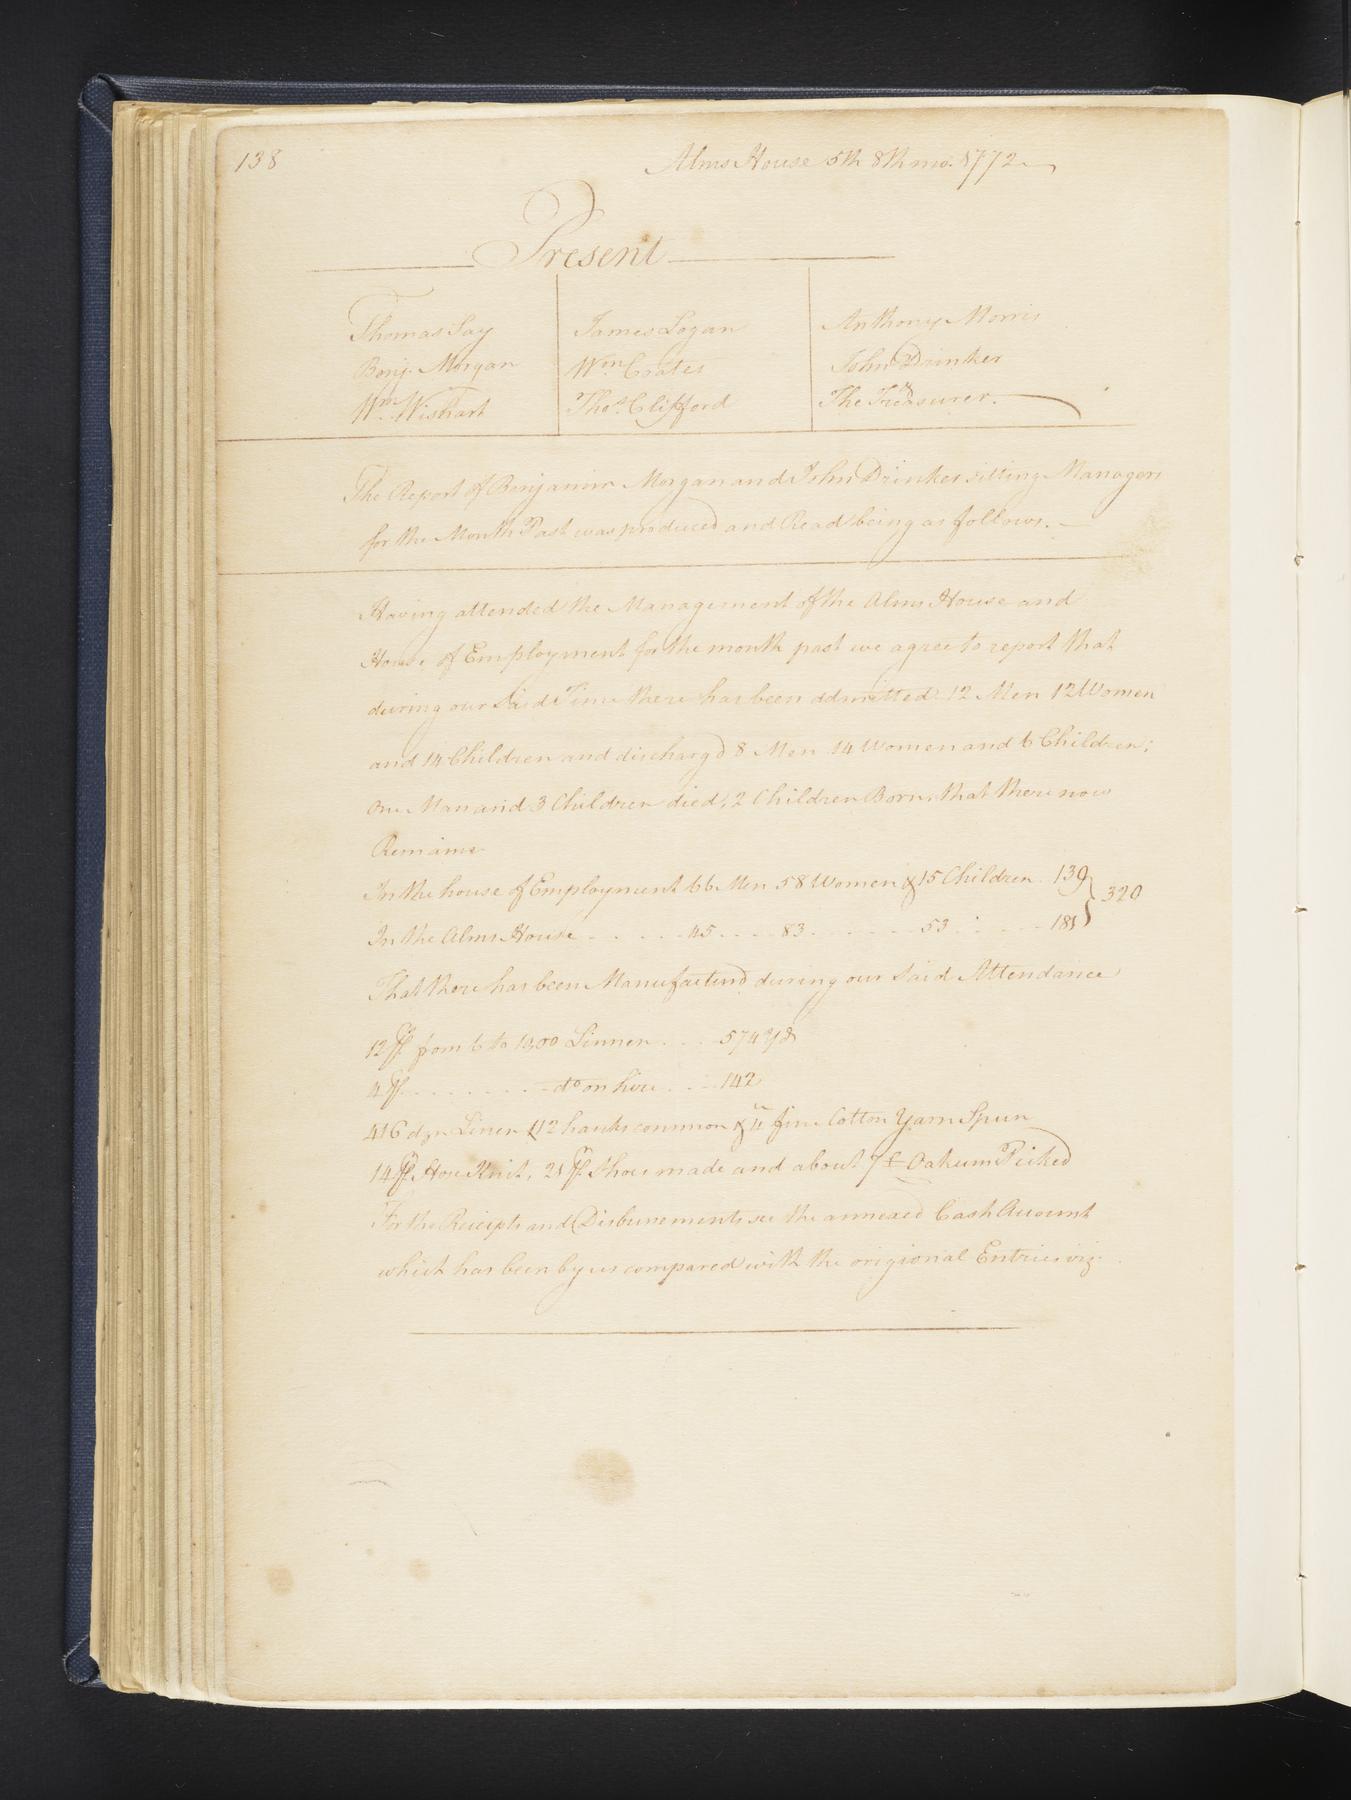 138
Alms House 5th 8th mo: 1772
Present
Thomas Say
Benj. Morgan
Wm. Wishart
James Logan
Wm. Coates
Thos. Clifford
Anthony Morris
John Drinker
The Treasurer.
The Report of Benjamin Morgan and John Drinker sitting Managers
for the Month Past was produced and Read being as follows. –
Having attended the Management of the Alms House and
House of Employment for the month past we agree to report that
during our said Time there has been admitted 12 Men 12 Women
and 14 Children and discharg'd 8 Men 14 Women and 6 Children;
One Man and 3 Children died, 2 Children Born, that there now
Remains
In the house of Employment 66 Men 58 Women & 15 Children 139
320
In the Alms House - - - - - 45 - - - - 83 - - - - - - 53 - - - - - 181
That there has been Manufactur'd during our said Attendance
12 ps. from 6 to 1000 Linnen . . . 574 Yds
4 ps. - - - - - - - - do on hire . . . 142
416 dzn Linen 112 hanks common & 11 fine Cotton Yarn Spun
14 pr. Hose Knit, 21 pr. Shoes made and about Oakum Picked
For the Receipts and Disbursements see the annexed Cash Account
which has been by us compared with the origional Entries viz.